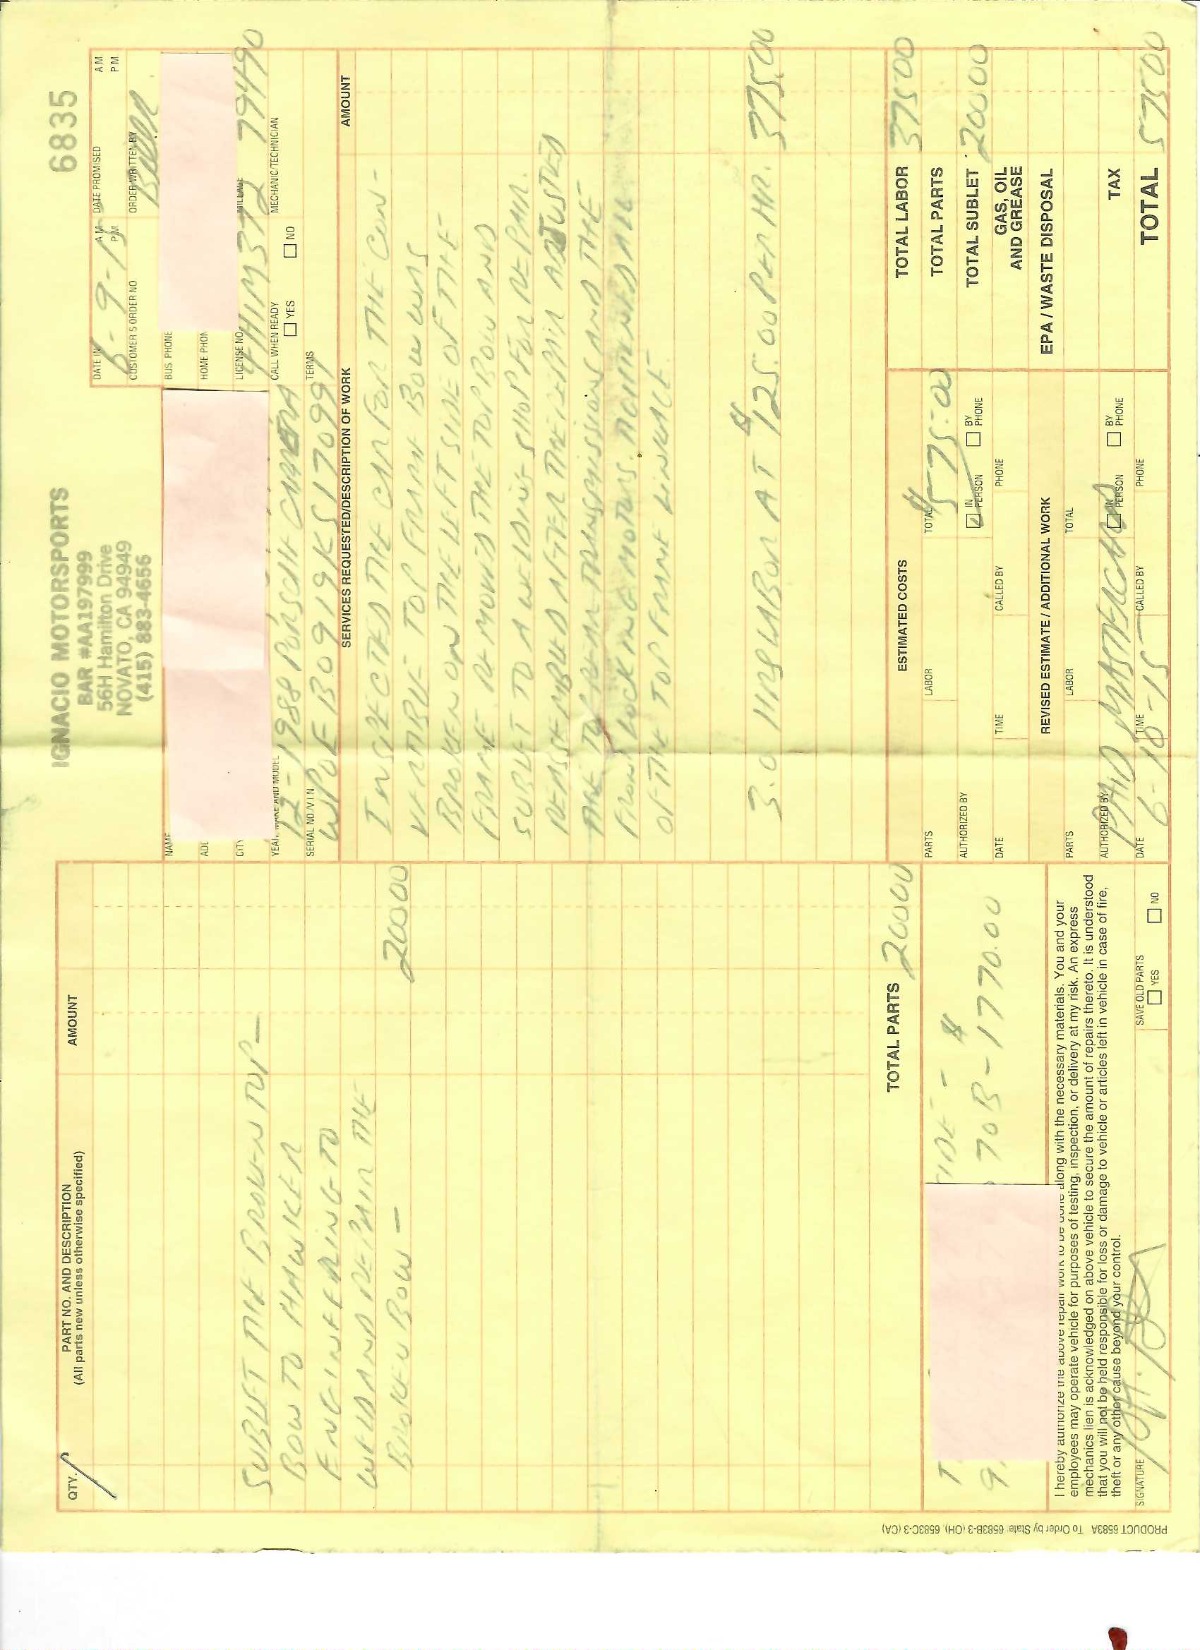 IGNACIO MOTORSPORTS
BAR #AA197999
56H Hamilton Drive
NOVATO, CA 94949
(415) 883-4656
6835
DATE IN
6-9-15
A.M.
P.M.
DATE PROMISED
A.M.
P.M.
CUSTOMER'S ORDER NO.
ORDER WRITTEN BY
NAME
BUS. PHONE
HOME PHON
CITY
LICENSE NO.
MILEAGE
79490
YEAR, MAKE AND MODEL
1988 PORSCHE CARRERA
CALL WHEN READY
YES
NO
MECHANIC/TECHNICIAN
SERIAL NO./V.I.N.
WPOEB0919KS17099
TERMS
QTY.
PART NO. AND DESCRIPTION
(All parts new unless otherwise specified)
AMOUNT
SUBLET THE BROKEN TOP -
BOW TO HAWKER
ENGINEERING TO
WELD AND REPAIR THE
BROKEN BOW -
200 00
TOTAL PARTS 200 00
SERVICES REQUESTED/DESCRIPTION OF WORK
AMOUNT
INSPECTED THE CAR FOR THE CON-
VERTABLE TOP FRAME BOW WAS
BROKEN ON THE LEFT SIDE OF THE
FRAME. REMOVED THE TOP BOW AND
SUBLET TO A WELDING SHOP FOR REPAIR.
REASSEMBLED AFTER THE REPAIR ADJUSTED
THE TOP REAR TRANSMISSIONS AND THE
FRONT LOCKING MOTORS. REALIGNED ALL
OF THE TOP FRAME LINKAGE -
3.0 HRS LABOR AT $125.00 PER HR. 375.00
ESTIMATED COSTS
PARTS
LABOR
TOTAL
$575.00
AUTHORIZED BY
IN PERSON
BY PHONE
DATE
TIME
CALLED BY
PHONE
REVISED ESTIMATE / ADDITIONAL WORK
PARTS
LABOR
TOTAL
AUTHORIZED BY
PAID MASTERCARD
IN PERSON
BY PHONE
DATE
6-10-15
TIME
CALLED BY
PHONE
TOTAL LABOR 375 00
TOTAL PARTS
TOTAL SUBLET 200 00
GAS, OIL
AND GREASE
EPA / WASTE DISPOSAL
TAX
TOTAL 575 00
70B-1770.00
I hereby authorize the above repair work to be done along with the necessary materials. You and your
employees may operate vehicle for purposes of testing, inspection, or delivery at my risk. An express
mechanics lien is acknowledged on above vehicle to secure the amount of repairs thereto. It is understood
that you will not be held responsible for loss or damage to vehicle or articles left in vehicle in case of fire,
theft or any other cause beyond your control.
SIGNATURE
SAVE OLD PARTS
YES
NO
PRODUCT 6583A To Order by State: 6583B-3 (OH), 6583C-3 (CA)